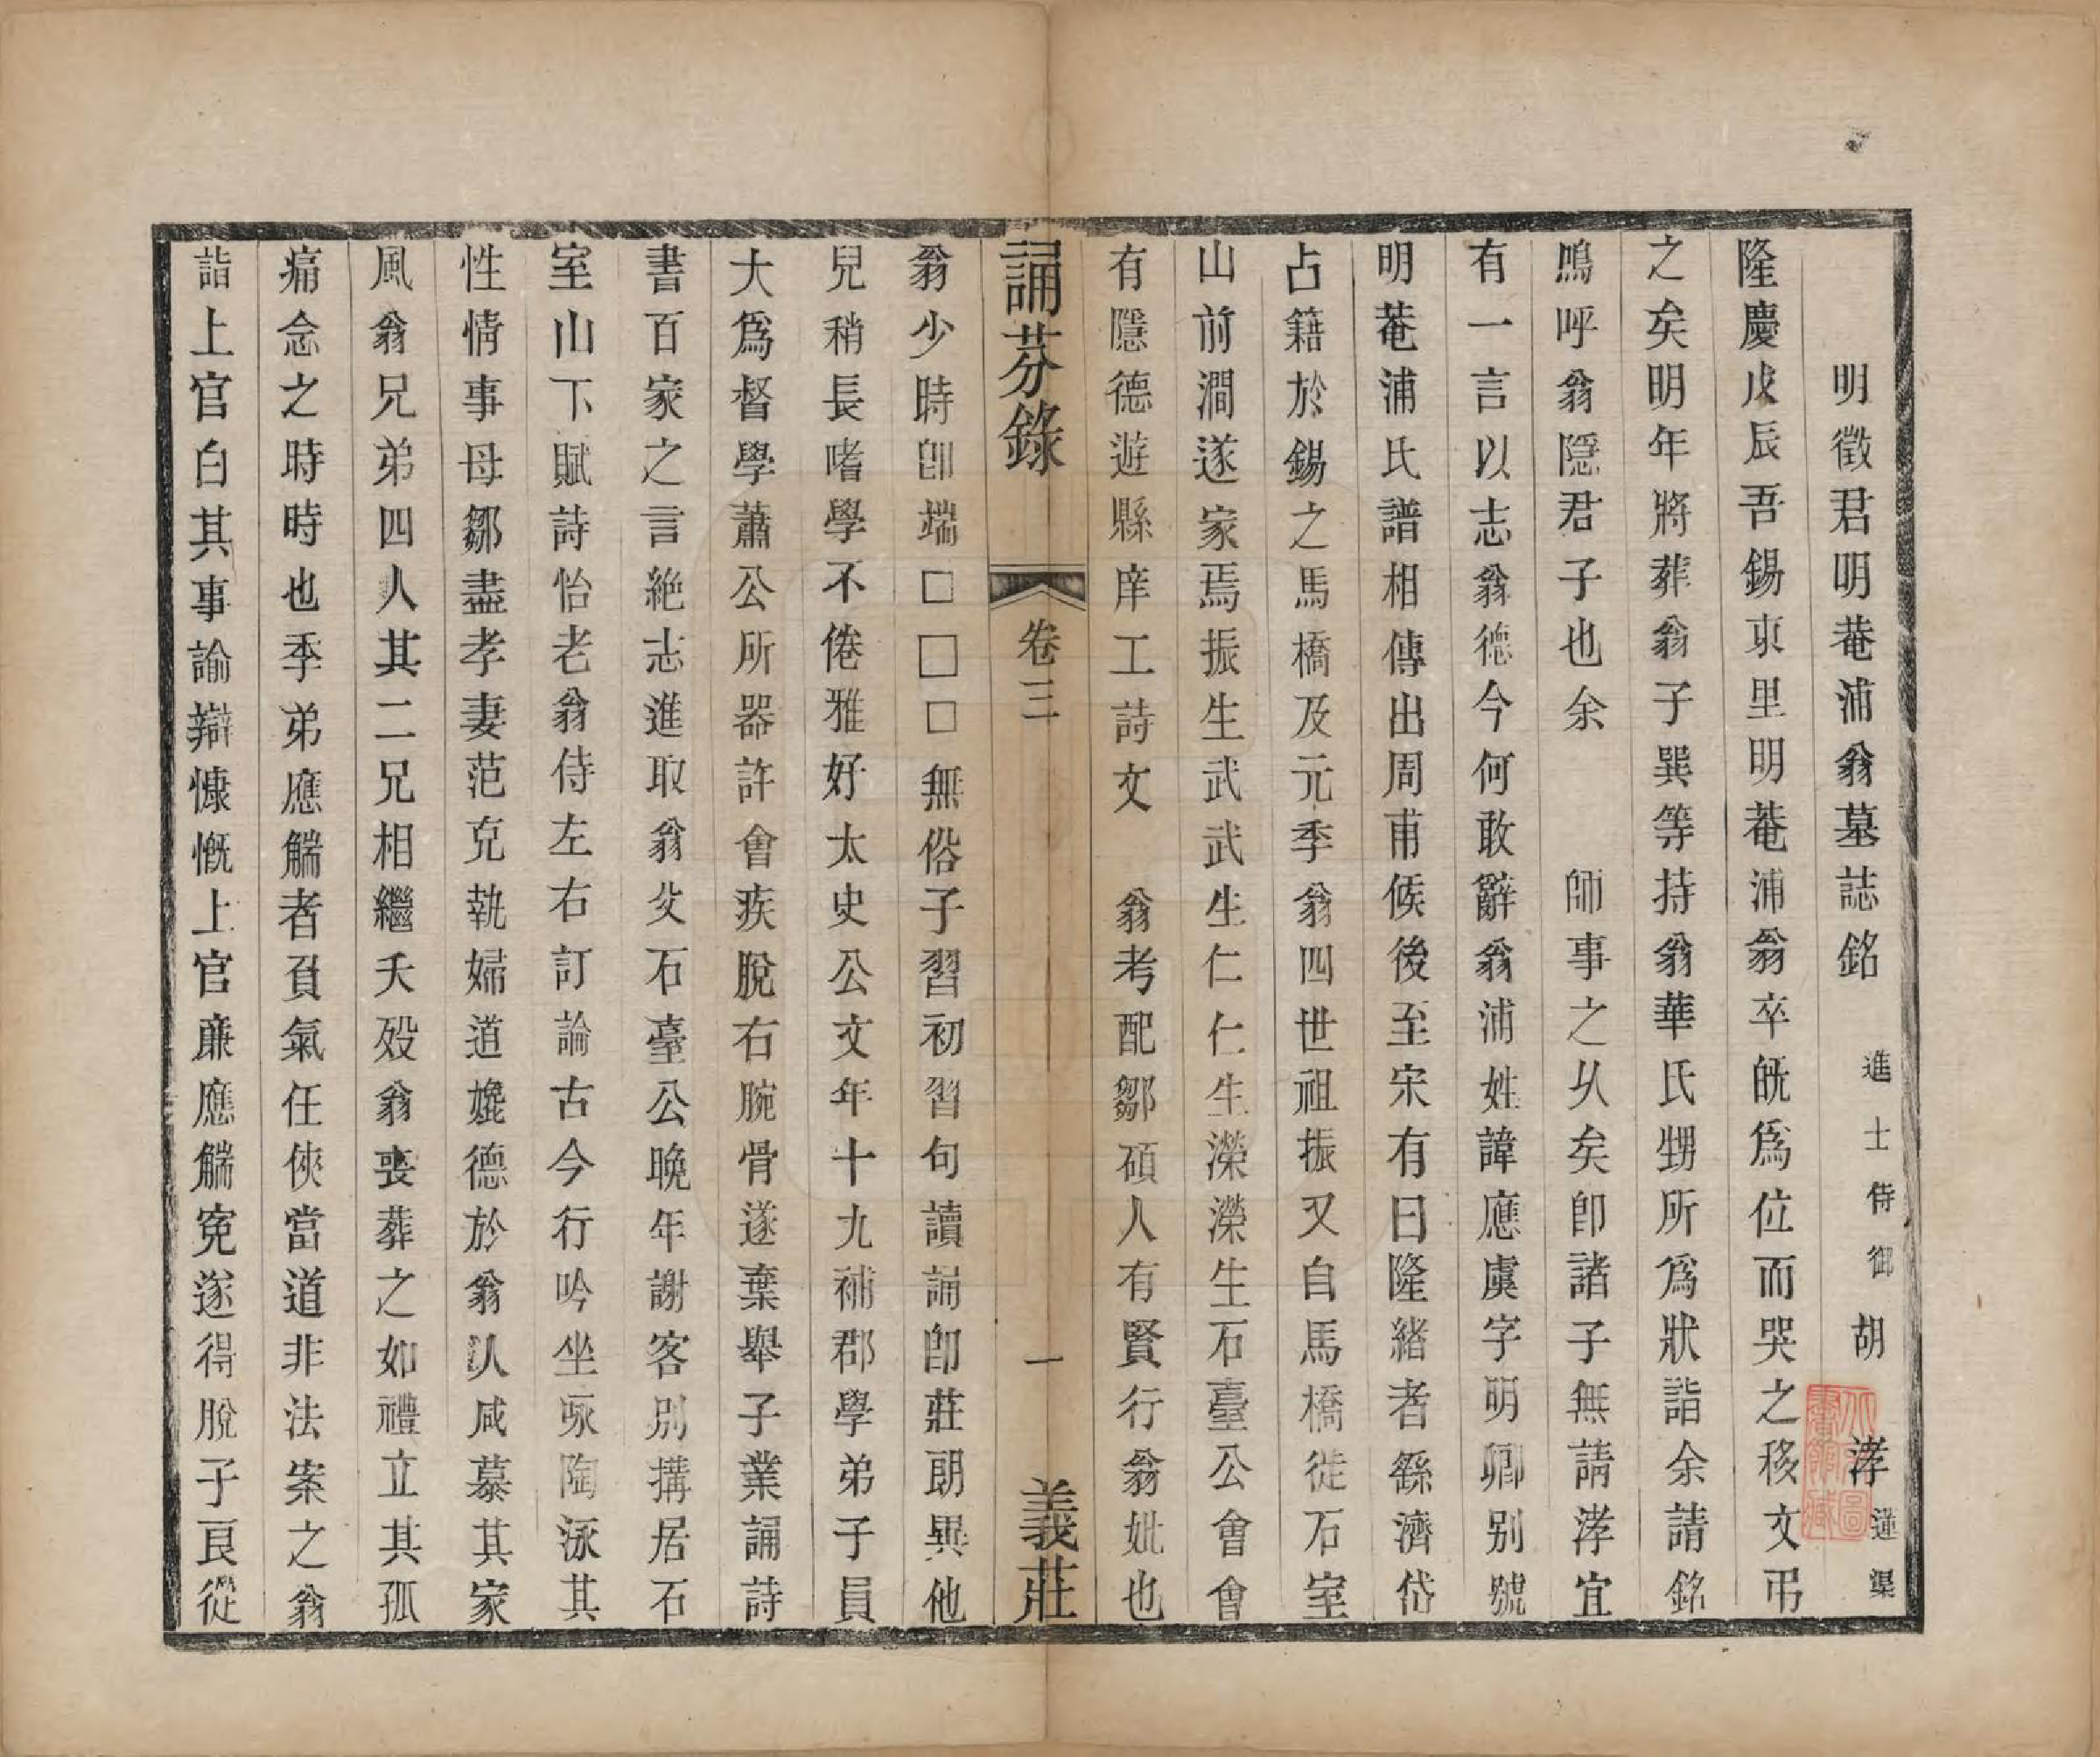 明徵君明菴浦翁墓誌銘 進士侍御 胡涍 蓮渠
隆慶戊辰吾錫東里明菴浦翁卒旣爲位而哭之移文弔
之矣明年將葬翁子巽等持翁華氏甥所爲狀詣余請銘
嗚呼翁隱君子也余 師事之久矣卽諸子無請涍宜
有一言以志翁德今何敢辭翁浦姓諱應虞字明卿别號
明菴浦氏譜相傳出周甫侯後至宋有曰隆緒者繇濟岱
占籍於錫之馬橋及元季翁四世祖振又自馬橋徙石室
山前澗遂家焉振生武武生仁仁生濚濚生石臺公會會
有隱德遊縣庠工詩文 翁考配鄒碩人有賢行翁妣也
誦芬錄 卷三 一 義莊
翁少時卽端□□□無俗子習初習句讀誦卽莊朗異他
兒稍長嗜學不倦雅好太史公文年十九補郡學弟子員
大爲督學蕭公所器許會疾脫右腕骨遂棄舉子業誦詩
書百家之言絶志進取翁父石臺公晚年謝客别搆居石
室山下賦詩怡老翁侍左右訂論古今行吟坐咏陶泳其
性情事母鄒盡孝妻范克執婦道嫓德於翁以咸慕其家
風翁兄弟四人其二兄相繼夭歿翁喪葬之如禮立其孤
痛念之時時也季弟應觹者負氣任俠當道非法案之翁
詣上官白其事論辯慷慨上官廉應觹寃遂得脫子良從